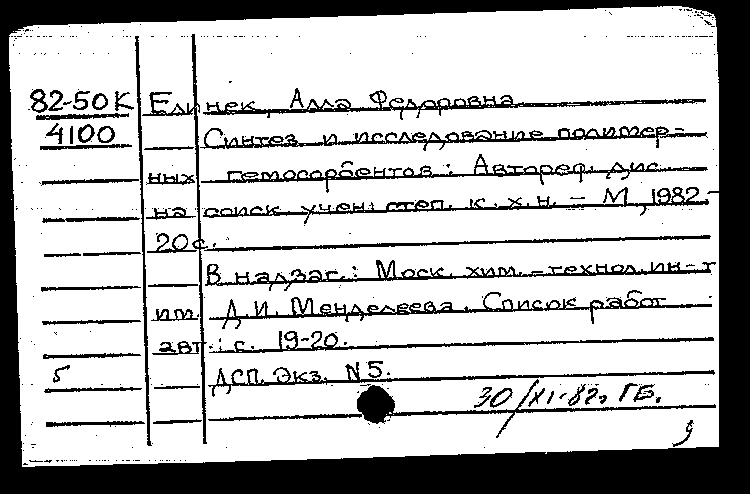 82-50К Елинек, Алла Федоровна
4100 Синтез и исследование полимер-
ных гемосорбентов: Автореф. дис.
на соиск. учен. степ. к. х. н. - М, 1982.-
20 с.
В надзаг.: Моск. хим.-технол. ин-т
им. Д.И. Менделеева. Список работ
авт.: с. 19-20.
5 ДСП. Экз. N 5.
30/XI-82. ГБ.